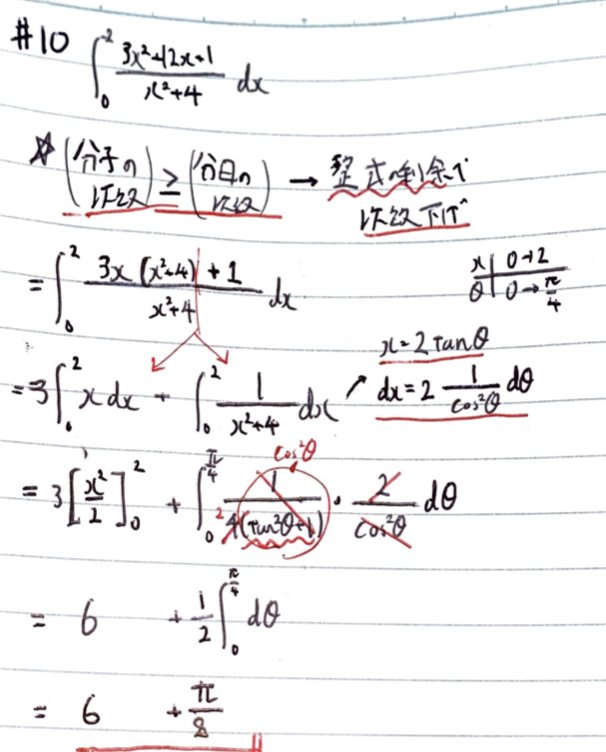 #10 ∫₀² (3x²+12x+1)/(x²+4) dx
☆ (分子の次数) ≧ (分母の次数) → 整式の割り余り
次数下げ
= ∫₀² (3x(x²+4) + 1)/(x²+4) dx
x | 0→2
θ | 0→π/4
x = 2tanθ
= 3∫₀² x dx + ∫₀² 1/(x²+4) dx ↗ dx = 2 1/cos²θ dθ
cos²θ
= 3[x²/2]₀² + ∫₀^(π/4) 1/(4(tan²θ+1)) · 2/cos²θ dθ
2
= 6 + 1/2 ∫₀^(π/4) dθ
= 6 + π/8